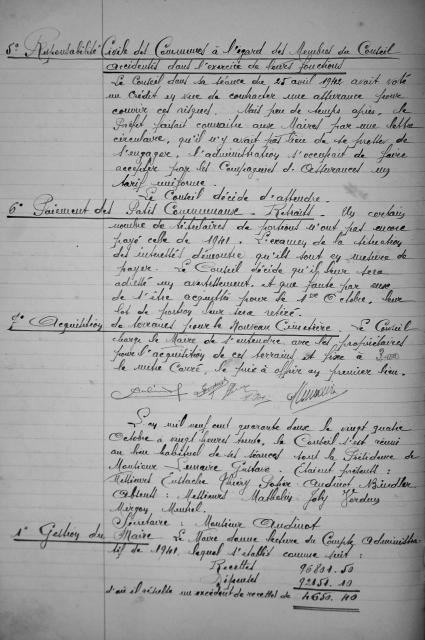 5° Responsabilité Civile des Communes à l'égard des Membres du Conseil
accidentés dans l'exercice de leurs fonctions
Le Conseil dans sa séance du 25 avril 1942 avait voté
un crédit en vue de contracter une assurance pour
couvrir ces risques. Mais peu de temps après, le
Préfet faisait connaitre aux Maires par une lettre
circulaire, qu'il n'y avait pas lieu de se presser de
s'engager, l'administration s'occupant de faire
accepter par les Compagnies d'Assurances un
tarif uniforme.
Le Conseil décide d'attendre.
6° Paiement des Patis Communaux - Retraits - Un certain
nombre de titulaires de portions n'ont pas encore
payé celle de 1941. L'examen de la situation
des intéressés démontre qu'ils sont en mesure de
payer. Le Conseil décide qu'il leur sera
adressé un avertissement, et que faute par eux
de s'être acquittés pour le 1er Octobre, leur
lot de portion leur sera retiré.
7° Acquisition de terrains pour le Nouveau Cimetière. Le Conseil
charge le Maire de s'entendre avec les propriétaires
pour l'acquisition de ces terrains et fixe à
le mètre Carré, le prix à offrir en premier lieu.
L'an mil neuf cent quarante deux le vingt quatre
Octobre à vingt heures trente, le Conseil s'est réuni
au lieu habituel de ses séances sous la Présidence de
Monsieur Lemaire Gustave. Etaient présents :
Messieurs Eustache Thiéry Audinot
Absents : Messieurs Mathelin Joly
Secrétaire : Monsieur Audinot
1° Gestion du Maire Le Maire donne lecture du Compte Administra-
tif de 1941, lequel s'établit comme suit :
Recettes 96801.50
Dépenses 92151.10
d'où il résulte un excédent de recettes de 4650.40